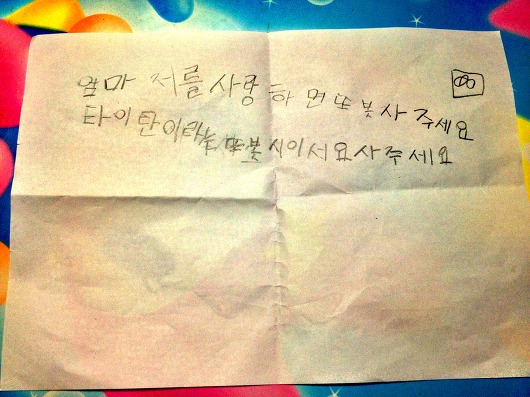 엄마 저를 사랑하면 또봇사주세요
타이탄이라는 또봇시이서요사주세요